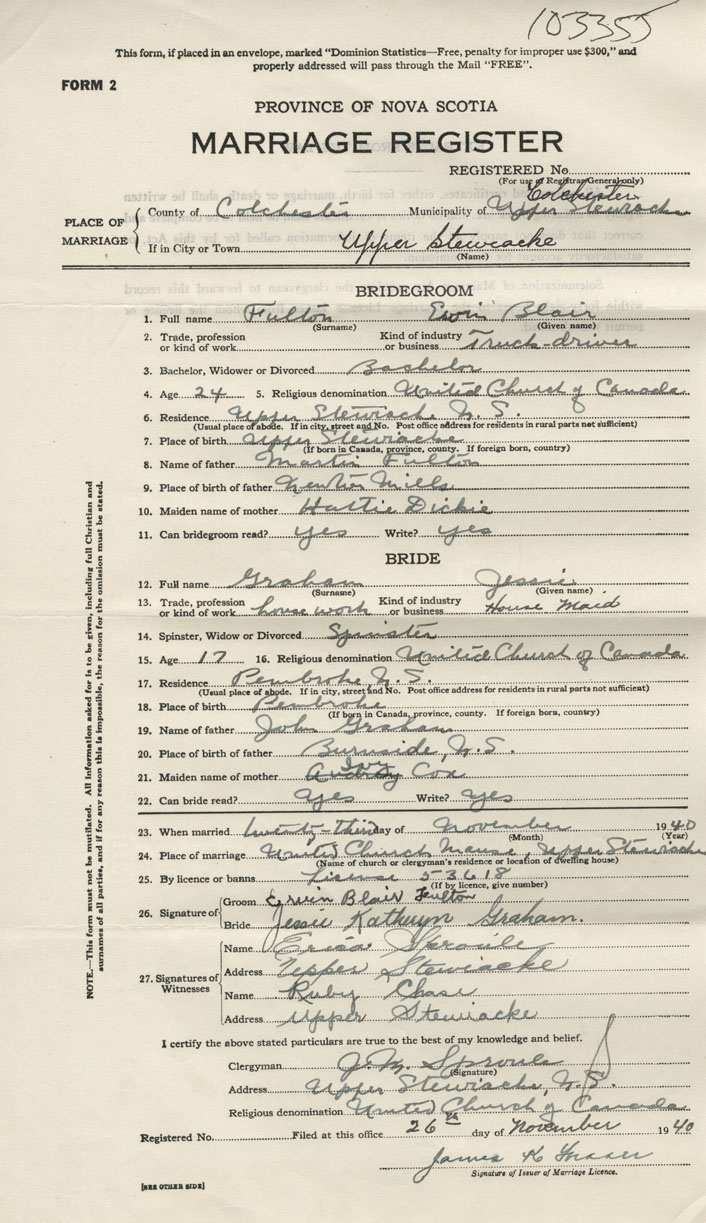 103355
This form, if placed in an envelope, marked "Dominion Statistics—Free, penalty for improper use $300," and
properly addressed will pass through the Mail "FREE".
FORM 2
PROVINCE OF NOVA SCOTIA
MARRIAGE REGISTER
REGISTERED No.
(For use of Registrar General only)
Colchester
PLACE OF MARRIAGE { County of Colchester Municipality of Upper Stewiacke
If in City or Town Upper Stewiacke
(Name)
BRIDEGROOM
1. Full name Fulton Erwin Blair
(Surname) (Given name)
2. Trade, profession or kind of work Kind of industry or business Truck-driver
3. Bachelor, Widower or Divorced Bachelor
4. Age 24 5. Religious denomination United Church of Canada
6. Residence Upper Stewiacke N. S.
(Usual place of abode. If in city, street and No. Post office address for residents in rural parts not sufficient)
7. Place of birth Upper Stewiacke
(If born in Canada, province, county. If foreign born, country)
8. Name of father Martin Fulton
9. Place of birth of father Newton Mills
10. Maiden name of mother Hattie Dickie
11. Can bridegroom read? yes Write? yes
BRIDE
12. Full name Graham Jessie
(Surname) (Given name)
13. Trade, profession or kind of work house work Kind of industry or business House Maid
14. Spinster, Widow or Divorced Spinster
15. Age 17 16. Religious denomination United Church of Canada
17. Residence Pembroke N. S.
(Usual place of abode. If in city, street and No. Post office address for residents in rural parts not sufficient)
18. Place of birth Pembroke
(If born in Canada, province, county. If foreign born, country)
19. Name of father John Graham
20. Place of birth of father Burnside, N. S.
21. Maiden name of mother Audrey Cox
22. Can bride read? Yes Write? yes
23. When married twenty-third day of November 1940
(Month) (Year)
24. Place of marriage United Church Manse, Upper Stewiacke
(Name of church or clergyman's residence or location of dwelling house)
25. By licence or banns License 53618
(If by licence, give number)
26. Signature of { Groom Erwin Blair Fulton
Bride Jessie Kathryn Graham.
27. Signatures of Witnesses { Name Erica Sproule
Address Upper Stewiacke
Name Ruby Chase
Address Upper Stewiacke
I certify the above stated particulars are true to the best of my knowledge and belief.
Clergyman J. M. Sproule
(Signature)
Address Upper Stewiacke, N. S.
Religious denomination United Church of Canada
Registered No. Filed at this office 26th day of November 1940
James K
Signature of Issuer of Marriage Licence.
[SEE OTHER SIDE]
NOTE.—This form must not be mutilated. All information asked for is to be given, including full Christian and
surnames of all parties, and if for any reason this is impossible, the reason for the omission must be stated.